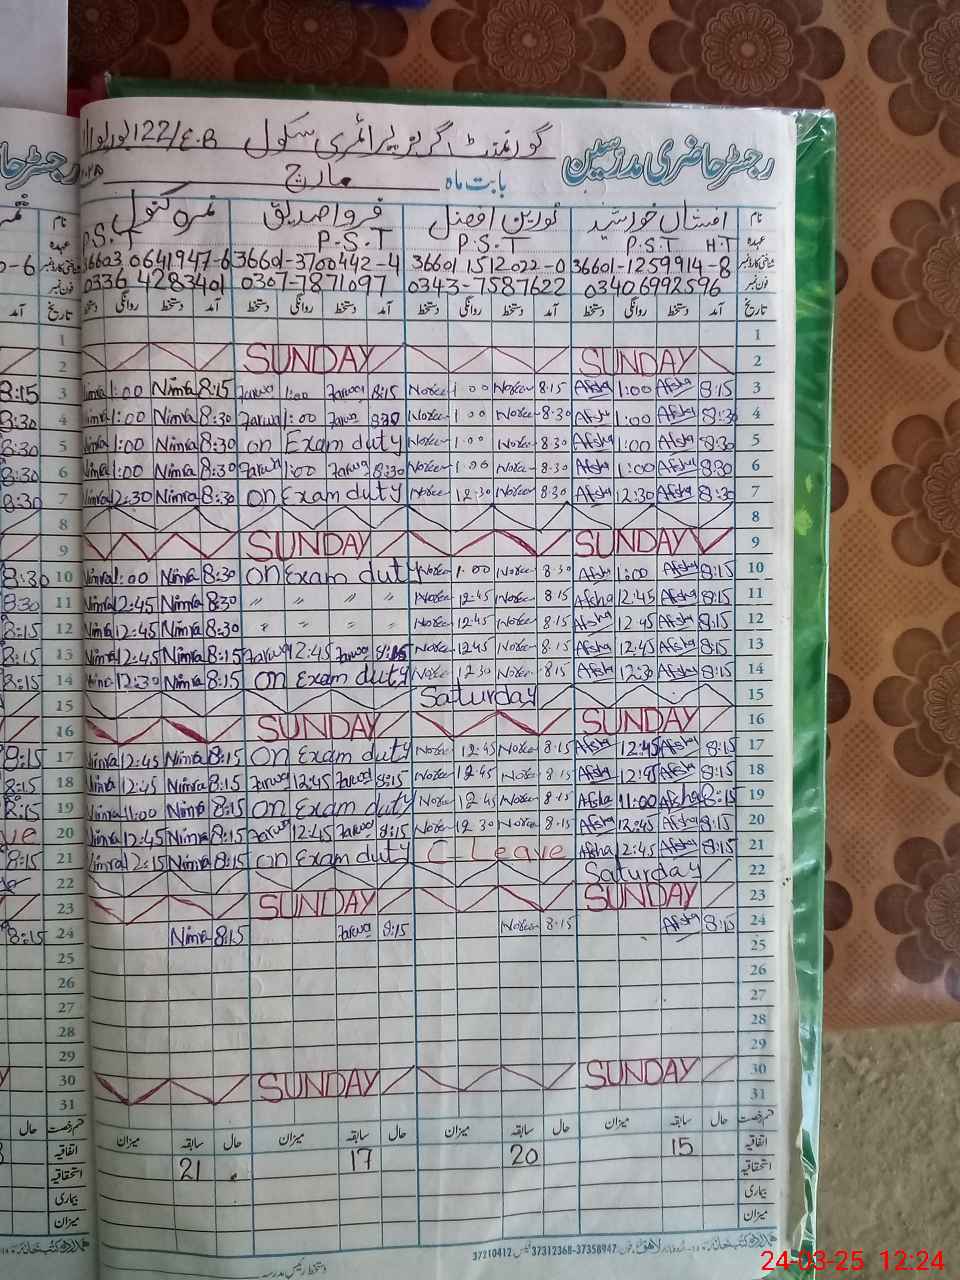 رجسٹر حاضری مدرسین گورنمنٹ گرلز پرائمری سکول 122/E.B
بابت ماہ مارچ
نام افشاں خورشید نورین افضل فروا صدیق نمرہ کنول
عہدہ P.S.T H.T P.S.T P.S.T P.S.T
شناختی کارڈ نمبر 36601-1259914-8 36601 1512022-0 36601-3700442-4 36603 0641947-6
فون نمبر 03406992596 0343-7587622 0307-7871097 0336 4283401
تاریخ آمد دستخط روانگی دستخط آمد دستخط روانگی دستخط آمد دستخط روانگی دستخط آمد دستخط روانگی دستخط
1
2 SUNDAY SUNDAY
3 8:15 Afsha 1:00 Afsha 8:15 Noreen 1:00 Noreen 8:15 Farwa 1:00 Farwa 8:15 Nimra 1:00 Nimra
4 8:30 Afsha 1:00 Afsha 8:30 Noreen 1:00 Noreen 8:30 Farwa 1:00 Farwa 8:30 Nimra 1:00 Nimra
5 8:30 Afsha 1:00 Afsha 8:30 Noreen 1:00 Noreen on Exam duty 8:30 Nimra 1:00 Nimra
6 8:30 Afsha 1:00 Afsha 8:30 Noreen 1:00 Noreen 8:30 Farwa 1:00 Farwa 8:30 Nimra 1:00 Nimra
7 8:30 Afsha 12:30 Afsha 8:30 Noreen 12:30 Noreen on Exam duty 8:30 Nimra 12:30 Nimra
8
9 SUNDAY SUNDAY
10 8:15 Afsha 1:00 Afsha 8:30 Noreen 1:00 Noreen on Exam duty 8:30 Nimra 1:00 Nimra
11 8:15 Afsha 12:45 Afsha 8:15 Noreen 12:45 Noreen " " " " 8:30 Nimra 12:45 Nimra
12 8:15 Afsha 12:45 Afsha 8:15 Noreen 12:45 Noreen " " " " 8:30 Nimra 12:45 Nimra
13 8:15 Afsha 12:45 Afsha 8:15 Noreen 12:45 Noreen 8:15 Farwa 12:45 Farwa 8:15 Nimra 12:45 Nimra
14 8:15 Afsha 12:30 Afsha 8:15 Noreen 12:30 Noreen on Exam duty 8:15 Nimra 12:30 Nimra
15 Saturday
16 SUNDAY SUNDAY
17 8:15 Afsha 12:45 Afsha 8:15 Noreen 12:45 Noreen on Exam duty 8:15 Nimra 12:45 Nimra
18 8:15 Afsha 12:45 Afsha 8:15 Noreen 12:45 Noreen 8:15 Farwa 12:45 Farwa 8:15 Nimra 12:45 Nimra
19 8:15 Afsha 11:00 Afsha 8:15 Noreen 12:45 Noreen on Exam duty 8:15 Nimra 11:00 Nimra
20 8:15 Afsha 12:45 Afsha 8:15 Noreen 12:30 Noreen 8:15 Farwa 12:45 Farwa 8:15 Nimra 12:45 Nimra
21 8:15 Afsha 12:45 Afsha C-Leave on Exam duty 8:15 Nimra 12:15 Nimra
22 Saturday
23 SUNDAY SUNDAY
24 8:15 Afsha 8:15 Noreen 8:15 Farwa 8:15 Nimra
25
26
27
28
29
30 SUNDAY SUNDAY
31
قسم رخصت حال سابقہ میزان حال سابقہ میزان حال سابقہ میزان حال سابقہ میزان
اتفاقیہ 15 20 17 21
استحقاقیہ
بیماری
میزان
37210412 37312368-37358947
دستخط رئیس مدرسہ
24-03-25 12:24